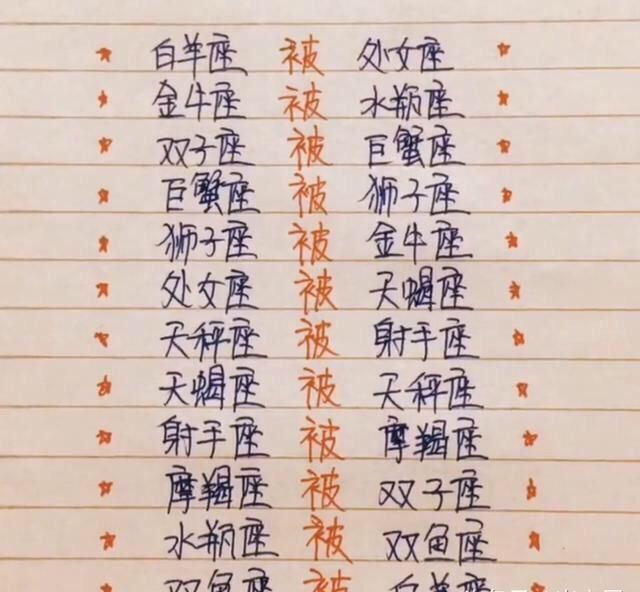 白羊座 被 处女座
金牛座 被 水瓶座
双子座 被 巨蟹座
巨蟹座 被 狮子座
狮子座 被 金牛座
处女座 被 天蝎座
天秤座 被 射手座
天蝎座 被 天秤座
射手座 被 摩羯座
摩羯座 被 双子座
水瓶座 被 双鱼座
双鱼座 被 白羊座